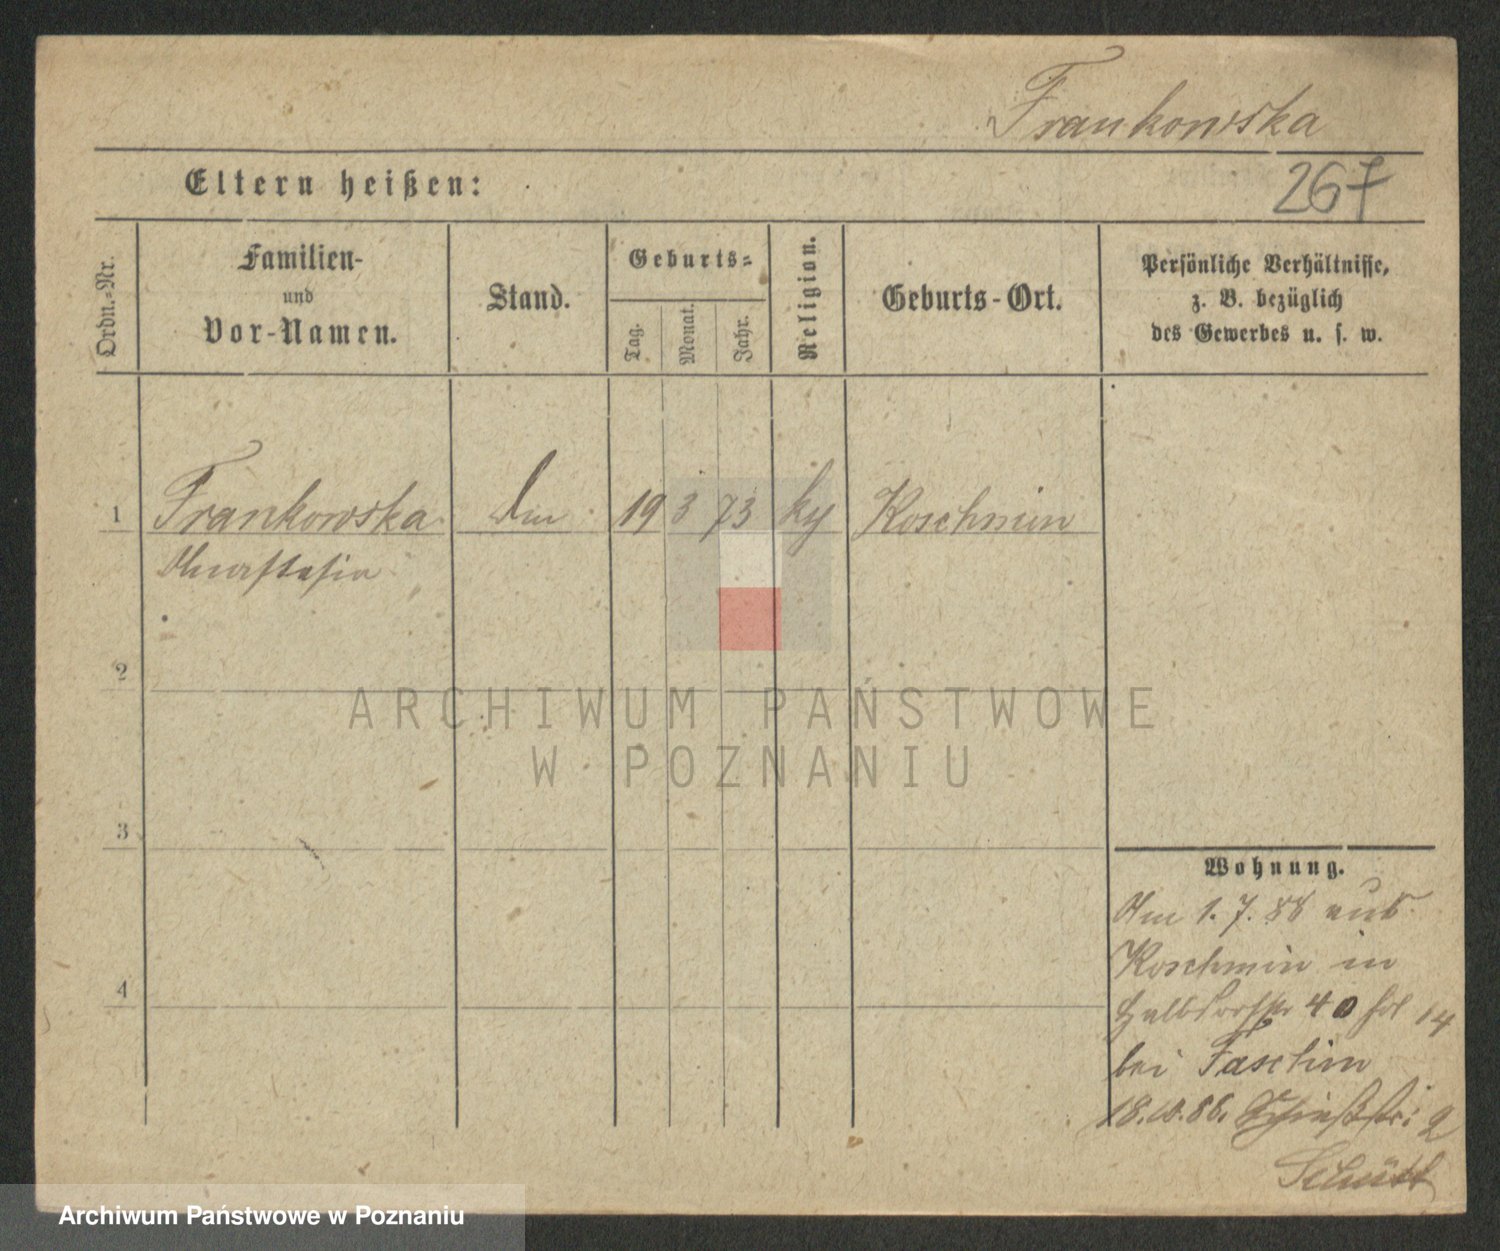 Frankowska
Eltern heißen:
267
Ordn.-Nr.
Familien-
und
Vor-Namen.
Stand.
Geburts-
Tag.
Monat.
Jahr.
Religion.
Geburts-Ort.
Persönliche Verhältnisse,
z. B. bezüglich
des Gewerbes u. s. w.
1 Frankowska 19 3 73 ky Koschmin
Anastasia
2
3
4
Wohnung.
Am 1. 7. 88 aus
Koschmin in
Halbdorfstr 40
bei
18.10.88. 2
Schütt
ARCHIWUM PAŃSTWOWE
W POZNANIU
Archiwum Państwowe w Poznaniu